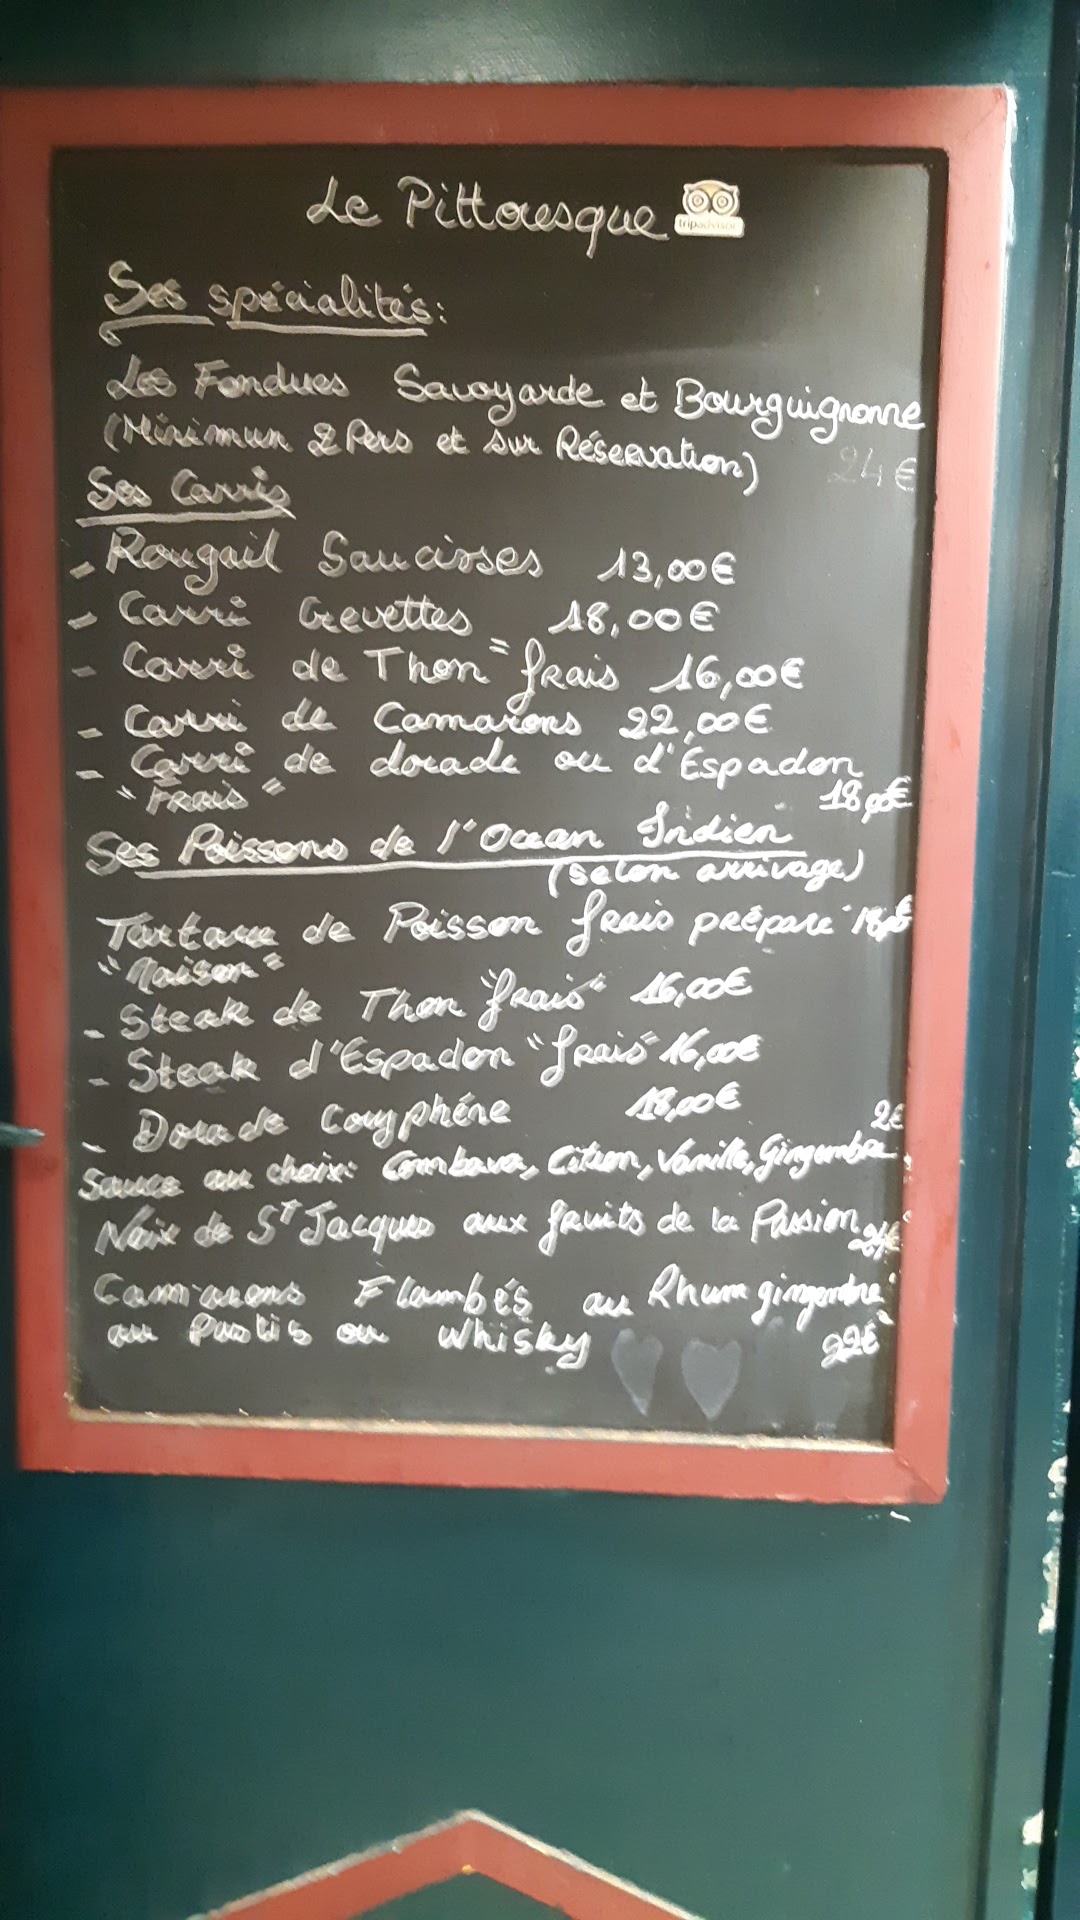 Le Pittoresque tripadvisor
Ses spécialités:
Les Fondues Savoyarde et Bourguignonne
(Minimun 2 Pers et sur Réservation) 24€
Ses Carris
- Rougail Saucisses 13,00€
- Carri Crevettes 18,00€
- Carri de Thon "frais 16,00€
- Carri de Camarons 22,00€
- Carri de dorade ou d'Espadon
"Frais" 18,00€
Ses Poissons de l'Ocean Indien
(selon arrivage)
Tartare de Poisson frais préparé 18,00€
"Maison"
- Steak de Thon "frais" 16,00€
- Steak d'Espadon "frais" 16,00€
- Dorade Coryphéne 18,00€
2€
Sauce au choix: Combava, Citron, Vanille, Gingembre
Noix de St Jacques aux fruits de la Passion 24€
Camarons Flambés au Rhum gingembre
au Pastis ou Whisky 22€